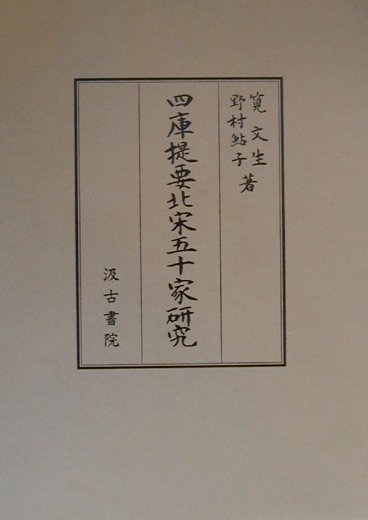 筧文生
野村鮎子 著
四庫提要北宋五十家研究
汲古書院